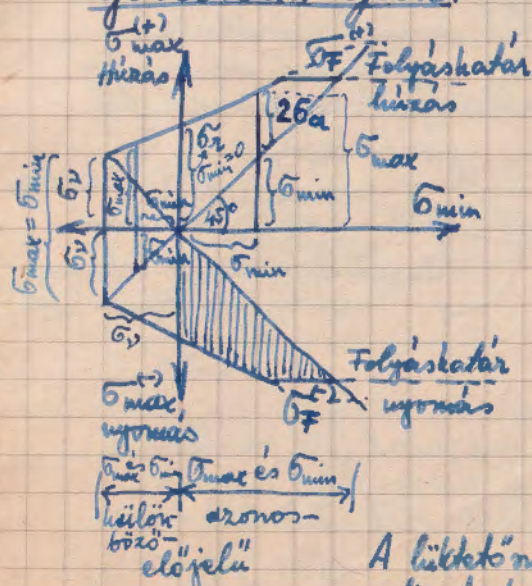 σmax(+)
Húzás
σF(+) Folyáshatár
húzás
2σa
σmax
σr
σmin=0
σmin
σmin
45°
σmin
σν
σν
σmax = σmin
σmax
σmin
σmin
σν
Folyáshatár
σF(-) nyomás
σmax(-)
nyomás
σmax és σmin σmax és σmin
külön- azonos-
böző-
előjelű
A lüktető